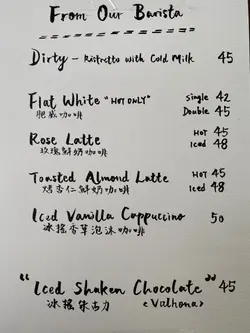 From Our Barista
Dirty - Ristretto with Cold Milk 45
Flat White "HOT ONLY" Single 42
肥威咖啡 Double 45
Rose Latte Hot 45
玫瑰鮮奶咖啡 Iced 48
Toasted Almond Latte Hot 45
烤杏仁鮮奶咖啡 Iced 48
Iced Vanilla Cappuccino 50
冰搖香草泡沫咖啡
"Iced Shaken Chocolate" 45
冰搖朱古力 <Valhona>